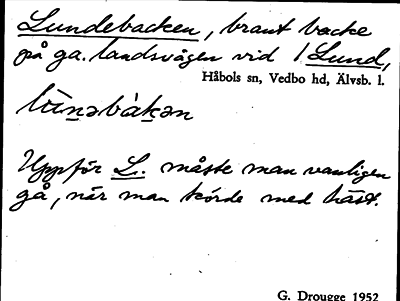 Lundebacken, brant backe
på ga. landsvägen vid 1 Lund,
Håbols sn, Vedbo hd, Älvsb. l.
lùṉəbàḵən
Uppför L. måste man vanligen
gå, när man körde med häst.
G. Drougge 1952